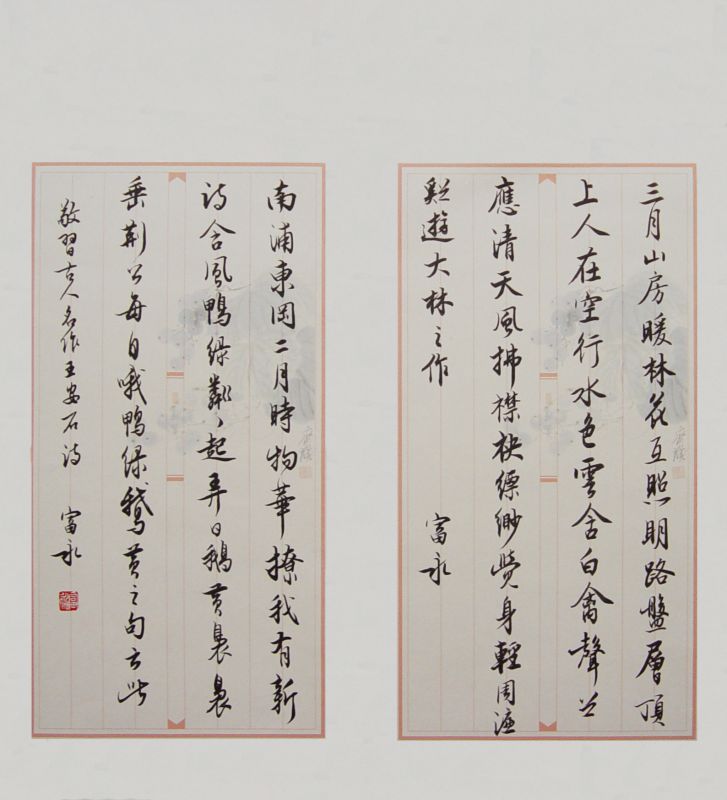 三月山房暖林花互照明路盤層頂
上人在空行水色雲含白禽聲谷
應清天風拂襟袂縹緲覺身輕周濂
谿遊大林之作
富永
南浦東岡二月時物華撩我有新
詩含風鴨綠粼〻起弄日鵝黃裊裊
垂荆公每自哦鴨綠鵝黃之句云此
敬習古人名作王安石詩
富永